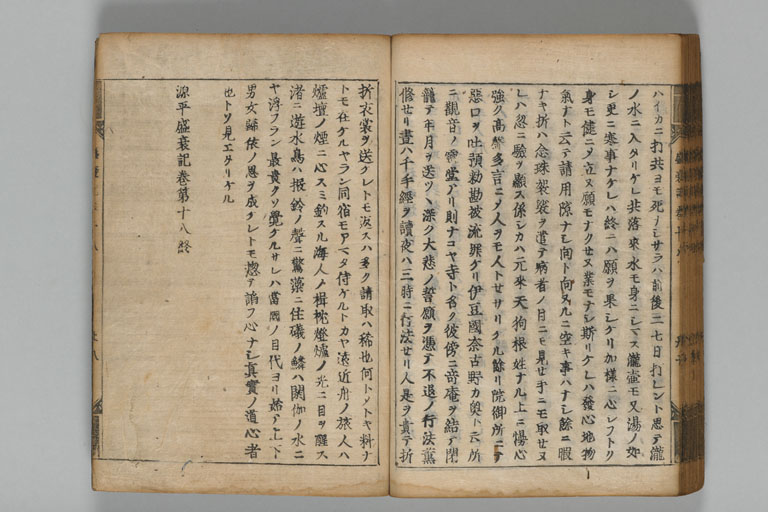 ハイカニ打共ヨモ死ノシサラハ前後三七日打レント思テ瀧
ノ水ニ入タリケレ共落來水モ身ニシマス瀧壷モ又湯ノ如
シ更ニ寒事ナケレハ終ニハ願ヲ果シケリ加様ニ心シフトリ
身モ健ニノ立ヌ願モナクせヌ業モナシ斯リケレハ發心地物
氣ナト云テ請用隙ナシ向ト向ヌルニ空キ事ハナシ餘ニ暇
ナキ折ハ念珠袈裟ヲ遣テ病者ノ目ニモ見せ手ニモ取せヌ
レハ忽ニ驗ヲ顯ス係シカハ元來天狗根姓ナル上ニ慢心
強ク高聲多言ニノ人ヲモ人トせサリケル餘リ院御所ニテ
惡口ヲ吐頸勅勘被流罪ケリ伊豆國奈古野カ奥ト云所
ニ觀音ノ靈堂アリ則ナコヤ寺ト名ク彼傍ニ奇庵ヲ結テ閉
籠テ年月ヲ送ツヽ深ク大悲ノ誓願ヲ憑テ不退ノ行法薫
修せリ晝ハ千手經ヲ讀夜ハ三時ニ行法せリ人是ヲ貴テ折
折衣裳ヲ送ケレトモ返スハ多ク請取ハ稀也何トメトキ料ナ
トモ在ケルヤラン同宿モアマタ侍ケルトカヤ遠近舟ノ旅人ハ
爐壇ノ煙ニ心スミ釣スル海人ノ楫枕燈爐ノ光ニ目ヲ醒ス
渚ニ遊水鳥ハ振鈴ノ聲ニ驚藻ニ住磯ノ鱗ハ閼伽ノ水ニ
ヤ浮フラン最貴クソ覺ケルサレハ當國ノ目代ヨリ始テ上下
男女歸依ノ思ヲ成ケレトモ惣テ諂フ心ナシ真實ノ道心者
也トソ見エタリケル
源平盛衰記卷第十八終